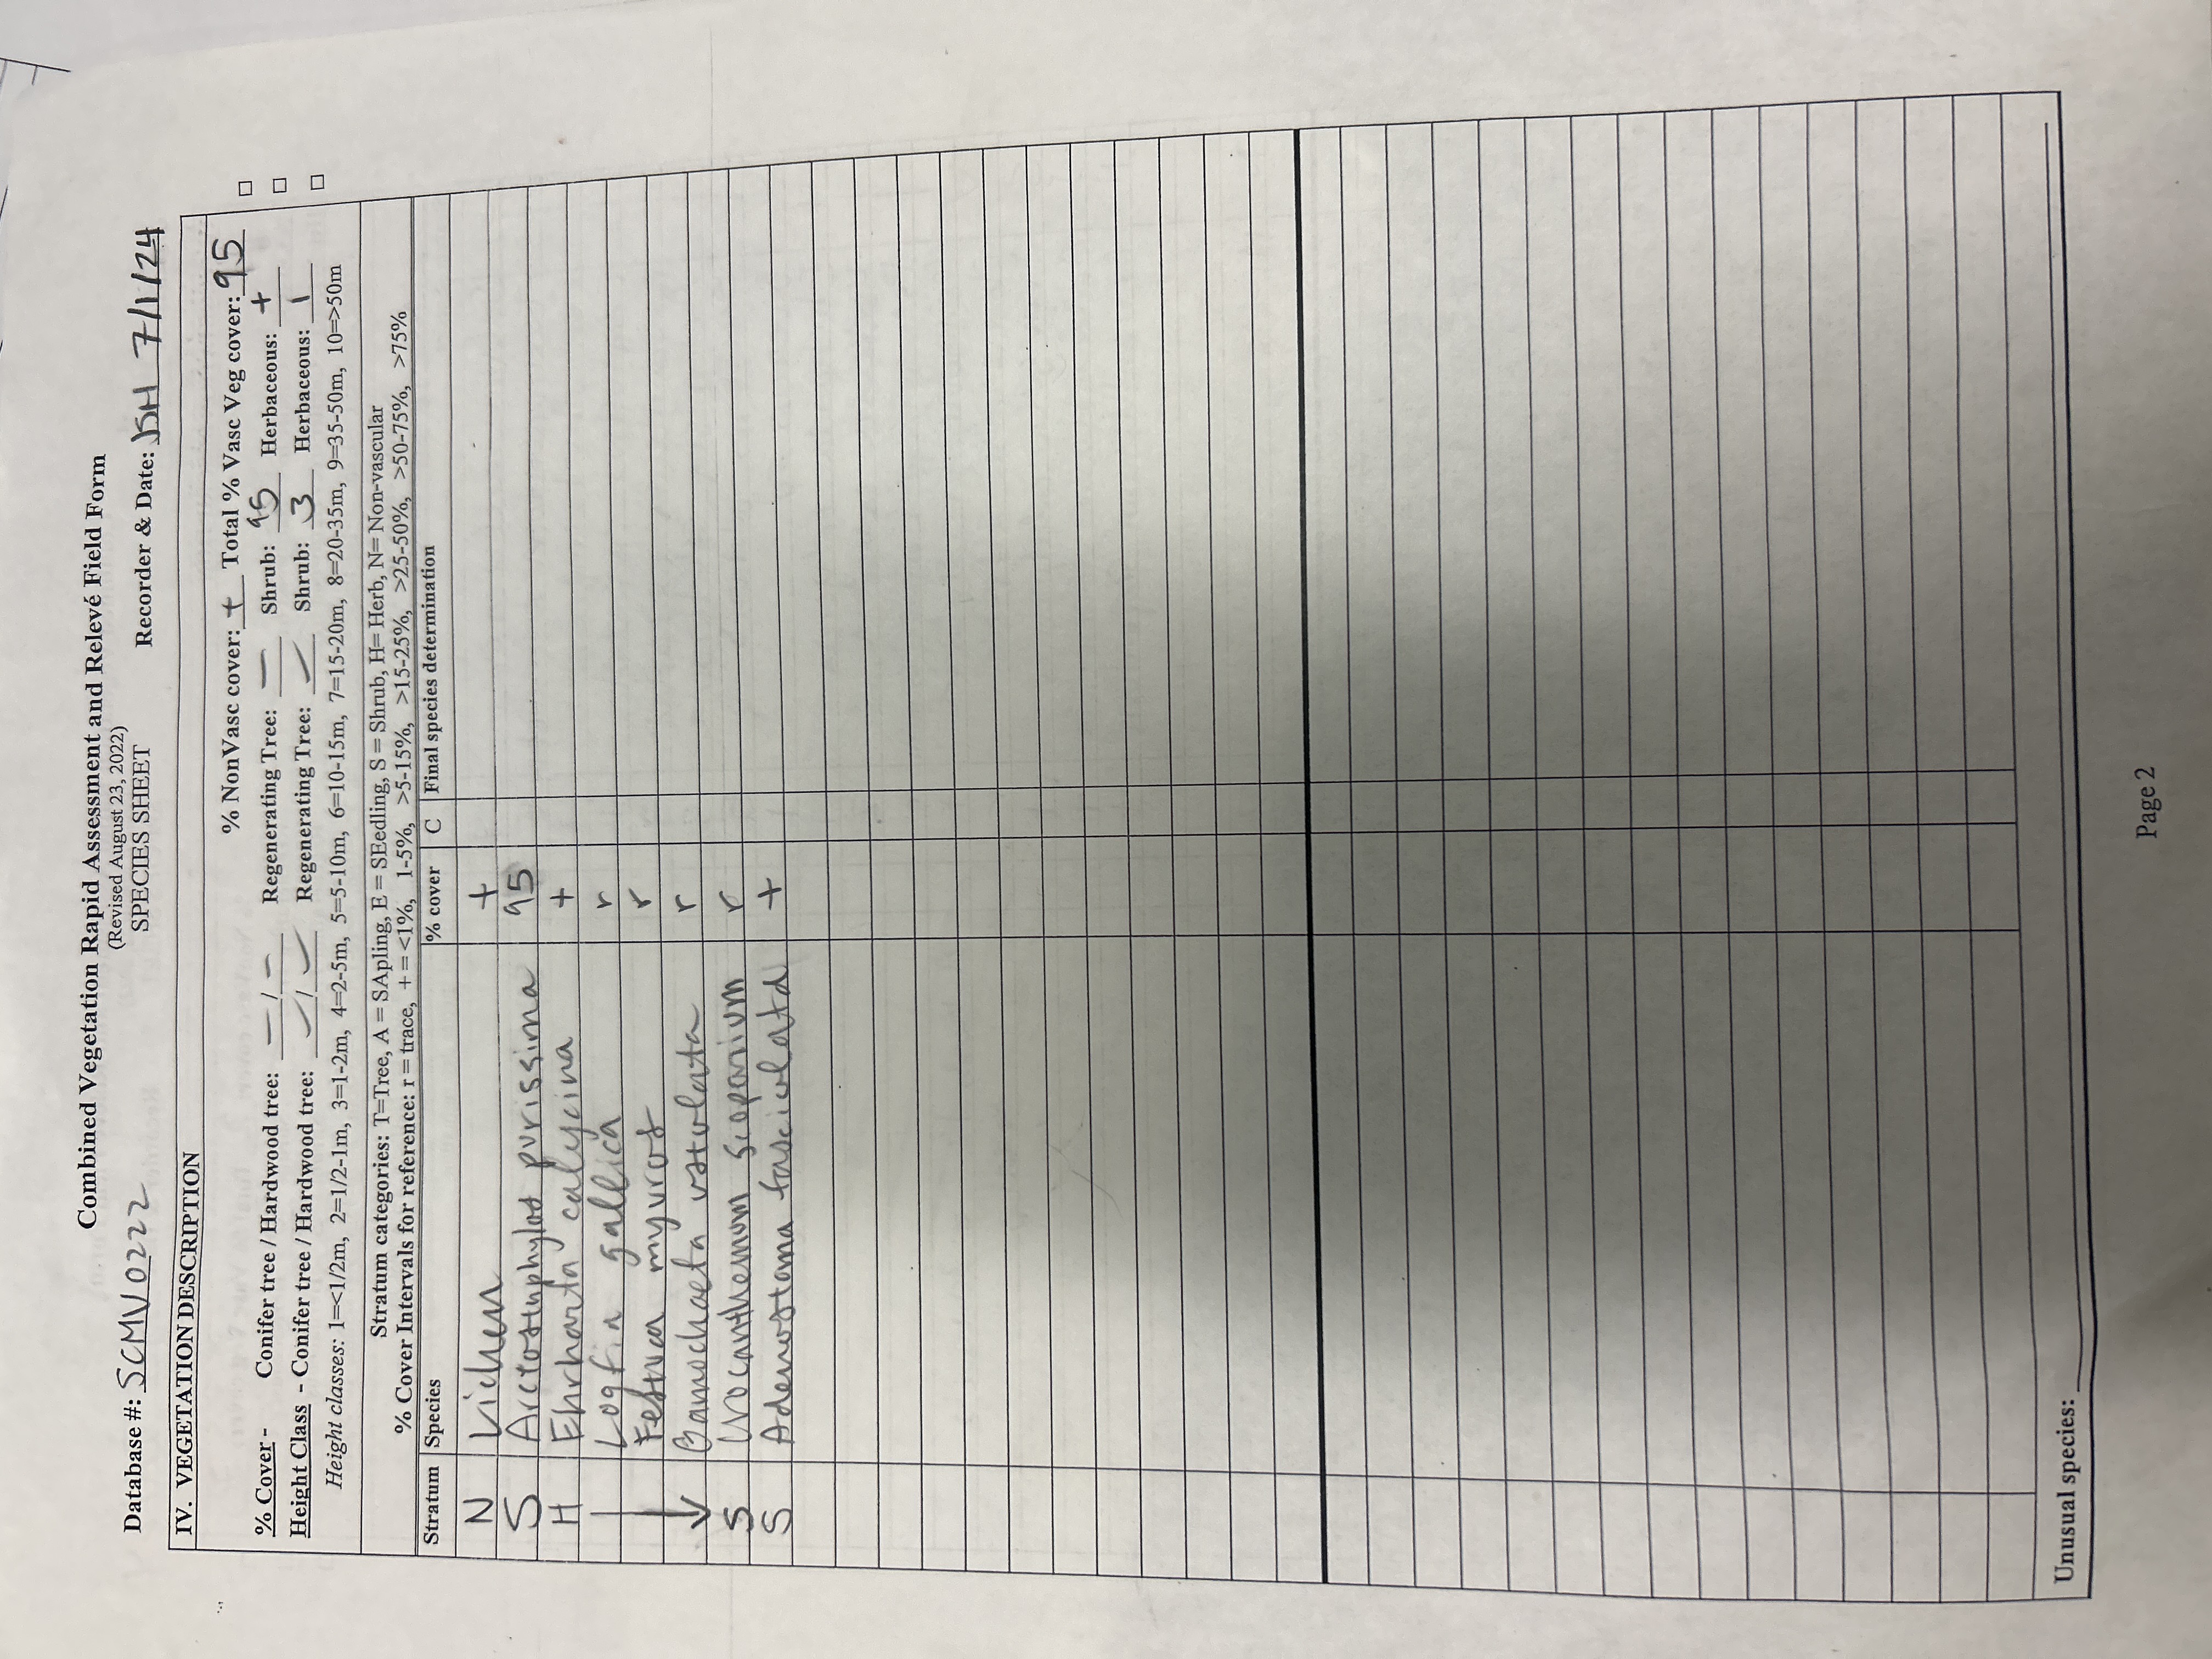 Combined Vegetation Rapid Assessment and Relevé Field Form
(Revised August 23, 2022)
SPECIES SHEET
Database #: SCMV0222 Recorder & Date: JSH 7/1/24
IV. VEGETATION DESCRIPTION
% NonVasc cover: + Total % Vasc Veg cover: 95 □
% Cover - Conifer tree / Hardwood tree: — / — Regenerating Tree: — Shrub: 95 Herbaceous: + □
Height Class - Conifer tree / Hardwood tree: — / — Regenerating Tree: — Shrub: 3 Herbaceous: 1 □
Height classes: 1=<1/2m, 2=1/2-1m, 3=1-2m, 4=2-5m, 5=5-10m, 6=10-15m, 7=15-20m, 8=20-35m, 9=35-50m, 10=>50m
Stratum categories: T=Tree, A = SApling, E = SEedling, S = Shrub, H= Herb, N= Non-vascular
% Cover Intervals for reference: r = trace, + = <1%, 1-5%, >5-15%, >15-25%, >25-50%, >50-75%, >75%
Stratum Species % cover C Final species determination
N Lichen +
S Arctostaphylos purissima 95
H Ehrharta calycina +
Logfia gallica r
Festuca myuros r
↓ Gamochaeta ustulata r
S Crocanthemum scoparium r
S Adenostoma fasciculata +
Unusual species:
Page 2